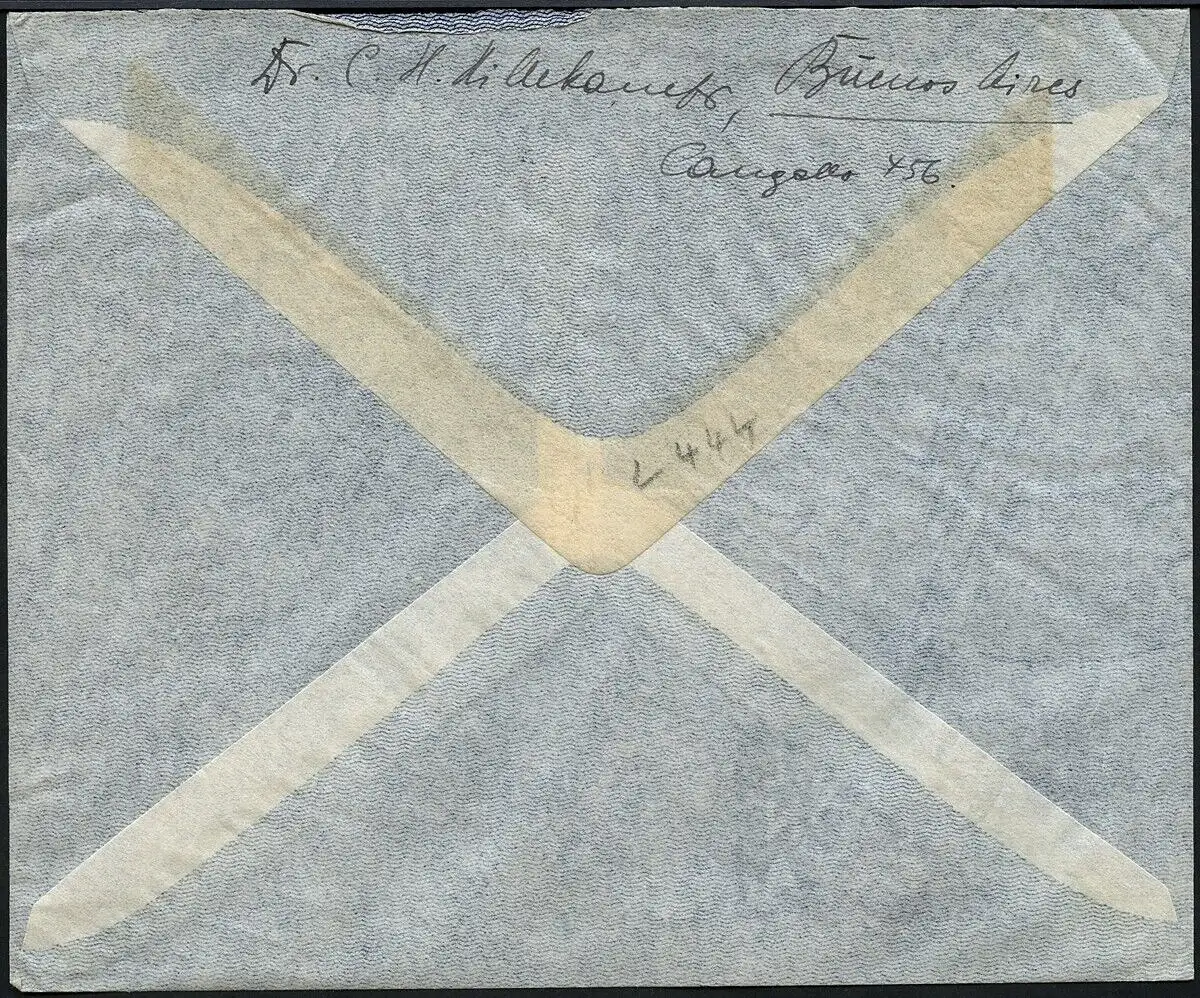 Dr. C. H. Hillekamps, Buenos Aires
Cangallo 456.
L 444